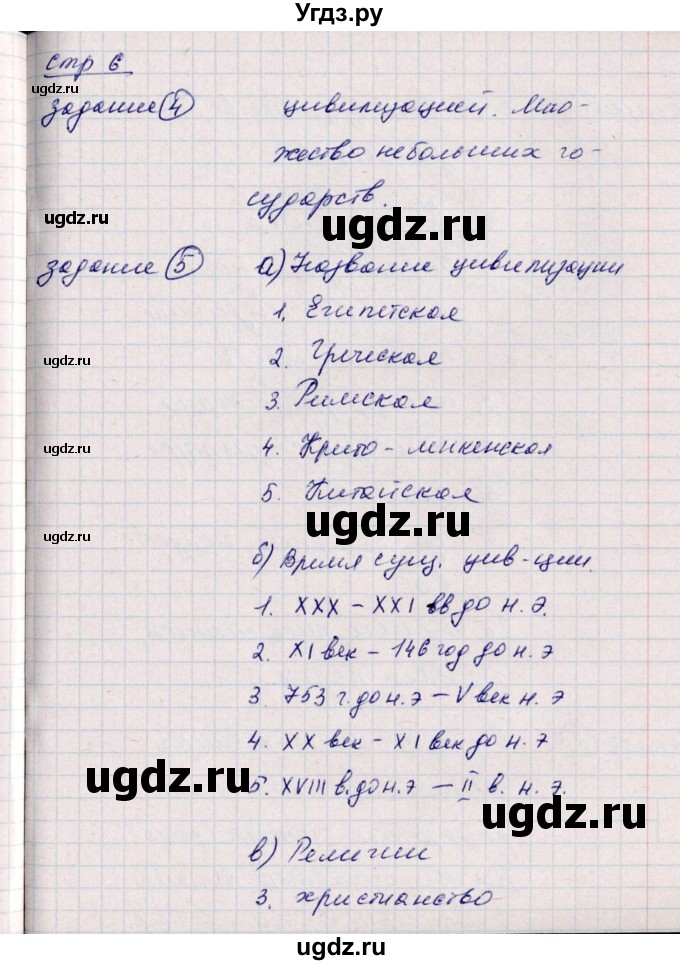 Угдз.ру
стр 6
задание 4 цивилизацией. Мно-
жество небольших го-
сударств.
задание 5 а) Название цивилизации
1. Египетская
2. Греческая
3. Римская
4. Крито-микенская
5. Китайская
б) Время сущ. цив-ции.
1. XXX - XXI вв до н. э.
2. XI век - 146 год до н. э
3. 753 г. до н. э - V век н. э
4. XX век - XI век до н. э
5. XVIII в. до н. э - II в. н. э.
в) Религии
3. христианство
ugdz.ru
ugdz.ru
ugdz.ru
ugdz.ru
ugdz.ru
ugdz.ru
ugdz.ru
ugdz.ru
ugdz.ru
ugdz.ru